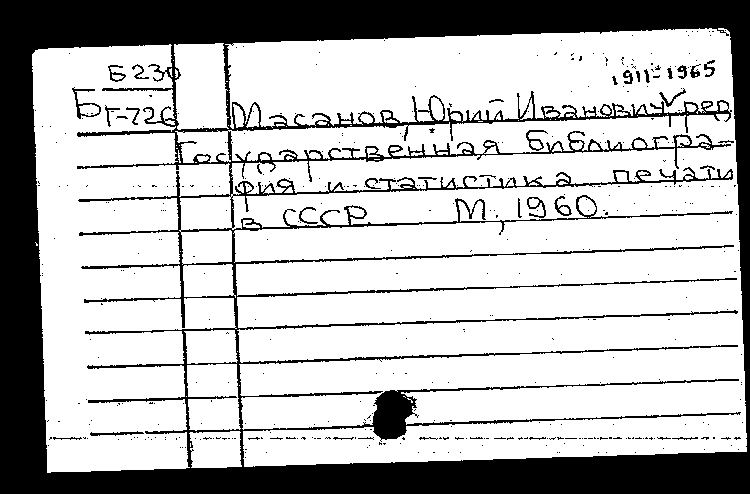 Б 230
1911-1965
Б Г-726 Масанов, Юрий Иванович, ред.
Государственная библиогра=
фия и статистика печати
в СССР. М., 1960.